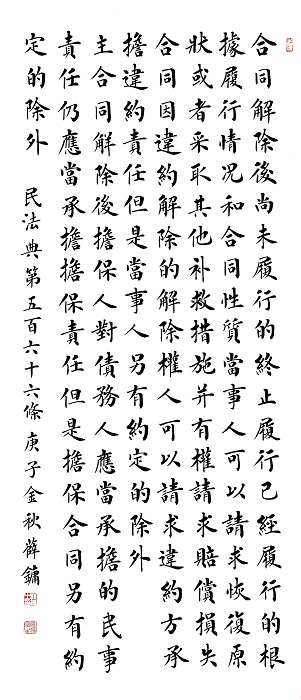 合同解除後尚未履行的終止履行已經履行的根
據履行情况和合同性質當事人可以請求恢復原
狀或者采取其他补救措施并有權請求賠償損失
合同因違約解除的解除權人可以請求違約方承
擔違約責任但是當事人另有約定的除外
主合同解除後擔保人對債務人應當承擔的民事
責任仍應當承擔擔保責任但是擔保合同另有約
定的除外 民法典第五百六十六條 庚子金秋薛鏞